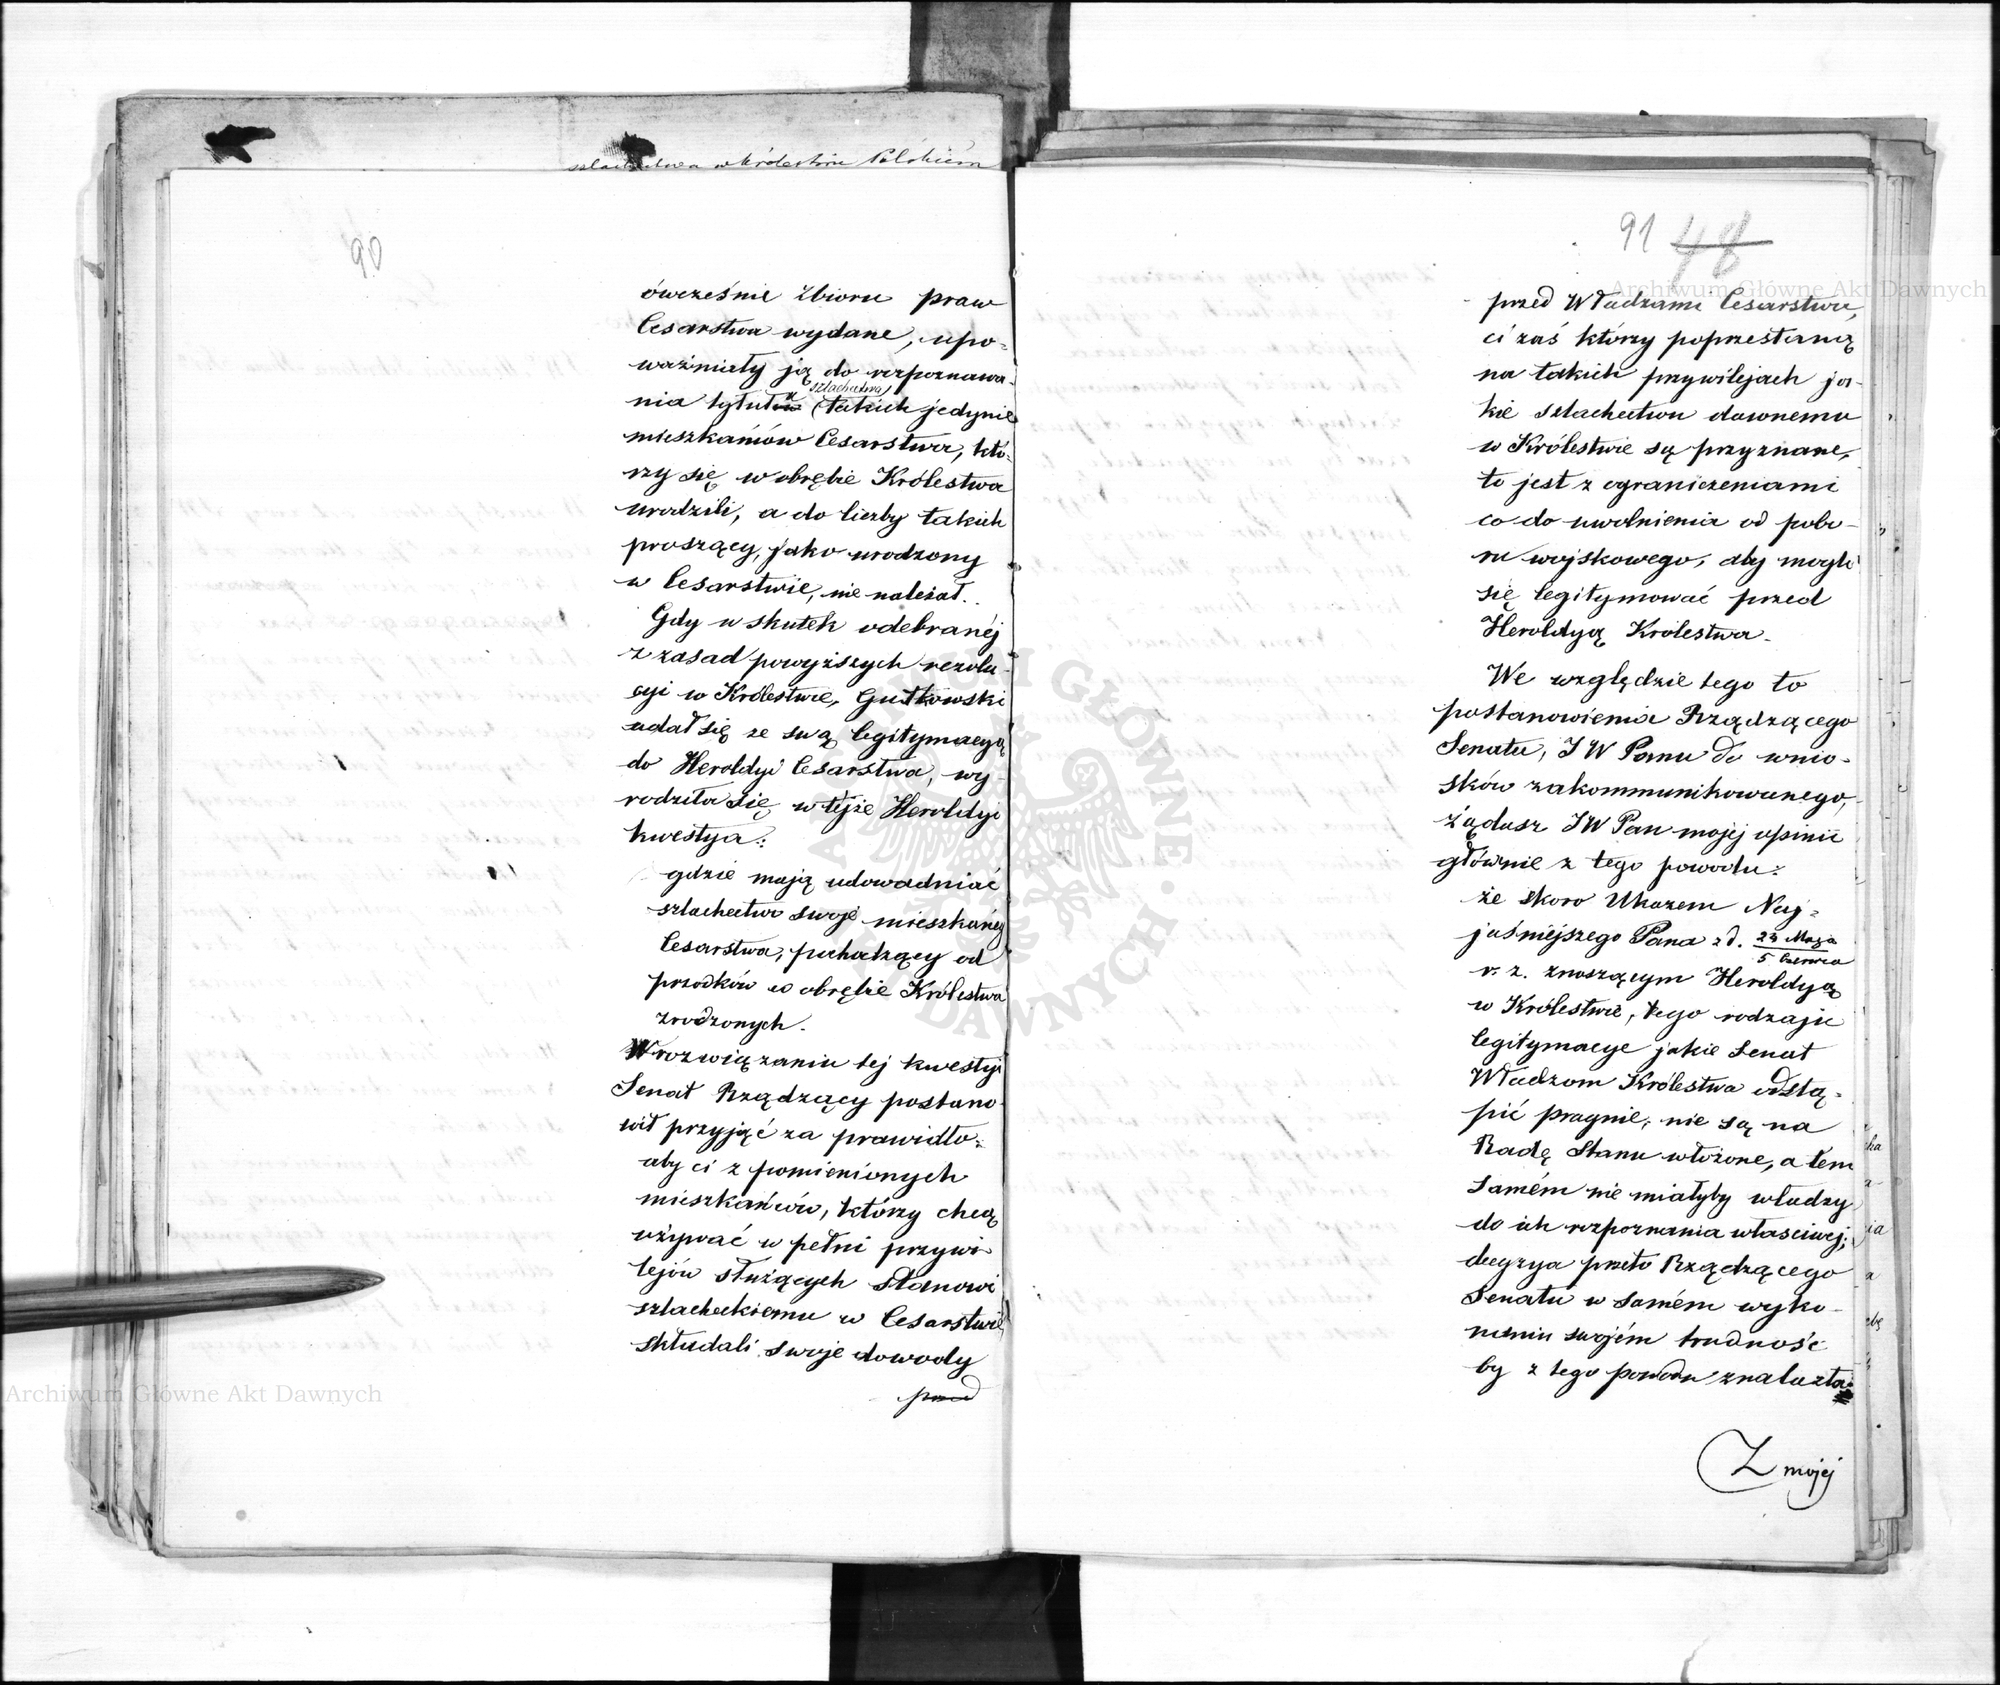 szlachectwa w Królestwie Polskiém
90
ówcześnie Zbioru praw
Cesarstwa wydane, upo-
ważniały ją do rozpoznawa-
nia tytułu szlachectwa, takich jedynie
mieszkańców Cesarstwa, któ-
rzy się w obrębie Królestwa
urodzili, a do liczby takich
proszący, jako urodzony
w Cesarstwie, nie należał.
Gdy w skutek odebranéj
z zasad powyższych rezolu-
cyi w Królestwie, Gutkowski
udał się ze swą legitymacyą
do Heroldyi Cesarstwa, wy-
rodziła się w tejże Heroldyi
kwestya:
gdzie mają udowadniać
szlachectwo swoje mieszkańcy
Cesarstwa, pochodzący od
przodków w obrębie Królestwa
zrodzonych.
W rozwiązaniu tej kwestyi
Senat Rządzący postano-
wił przyjąć za prawidło:
aby ci z pomienionych
mieszkańców, którzy chcą
używać w pełni przywi-
lejów służących stanowi
szlacheckiemu w Cesarstwie
składali swoje dowody
przed
91 48
przed Władzami Cesarstwa,
ci zaś którzy poprzestaną
na takich przywilejach ja-
kie szlachectwu dawnemu
w Królestwie są przyznane,
to jest z ograniczeniami
co do uwolnienia od pobo-
ru wojskowego, aby mogli
się legitymować przed
Heroldyą Królestwa.
We względzie tego to
postanowienia Rządzącego
Senatu, JW Panu do wnio-
sków zakommunikowanego,
żądasz JW Pan mojéj opinii
głównie z tego powodu:
że skoro Ukazem Naj-
jaśniejszego Pana z d. 24 Maja
5 Czerwca
r. z. znoszącym Heroldyą
w Królestwie, tego rodzaju
legitymacye jakie Senat
Władzom Królestwa odstą-
pić pragnie, nie są na
Radę Stanu włożone, a tém
samém nie miałyby władzy
do ich rozpoznania właściwej;
decyzya przeto Rządzącego
Senatu w samém wyko-
naniu swojém trudność
by z tego powodu znalazła.
Z mojej
Archiwum Główne Akt Dawnych
Archiwum Główne Akt Dawnych
ARCHIWUM GŁÓWNE AKT DAWNYCH